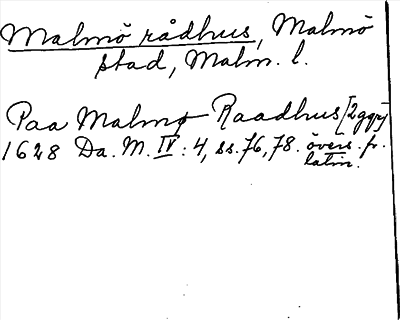 Malmö rådhus, Malmö
stad, Malm. l.
Paa Malmø Raadhus [2ggr]
1628 Da. M. IV: 4, ss. 76, 78. övers. fr.
latin.